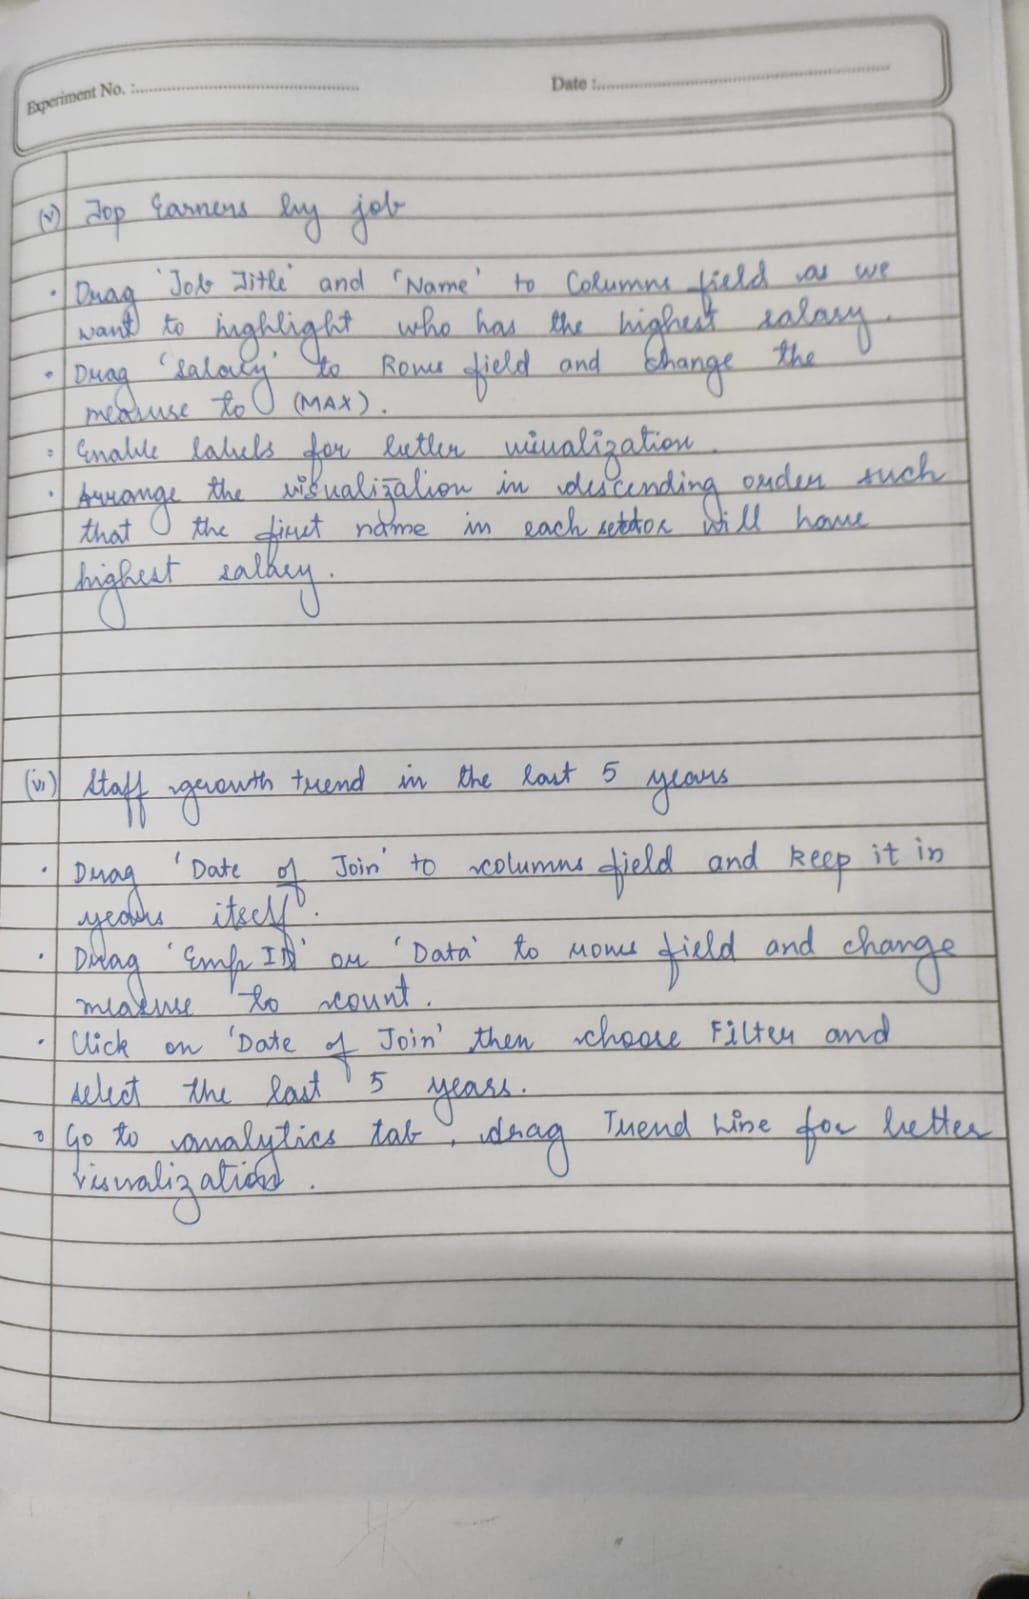 Experiment No. :
Date :
(v) Top Earners by job
• Drag 'Job Title' and 'Name' to Columns field as we
want to highlight who has the highest salary.
• Drag 'Salary' to Rows field and change the
measure to (MAX).
• Enable labels for better visualization.
• Arrange the visualization in descending order such
that the first name in each sector will have
highest salary.
(vi) Staff growth trend in the last 5 years
• Drag 'Date of Join' to columns field and keep it in
years itself.
• Drag 'Emp ID' or 'Data' to rows field and change
measure to count.
• Click on 'Date of Join' then choose Filter and
select the last 5 years.
• Go to analytics tab, drag Trend line for better
visualization.